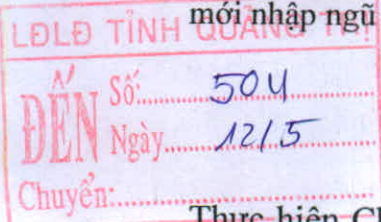 mới nhập ngũ
LĐLĐ TỈNH QUẢNG TRỊ
ĐẾN
Số: 504
Ngày 12/5
Chuyển:
Thực hiện